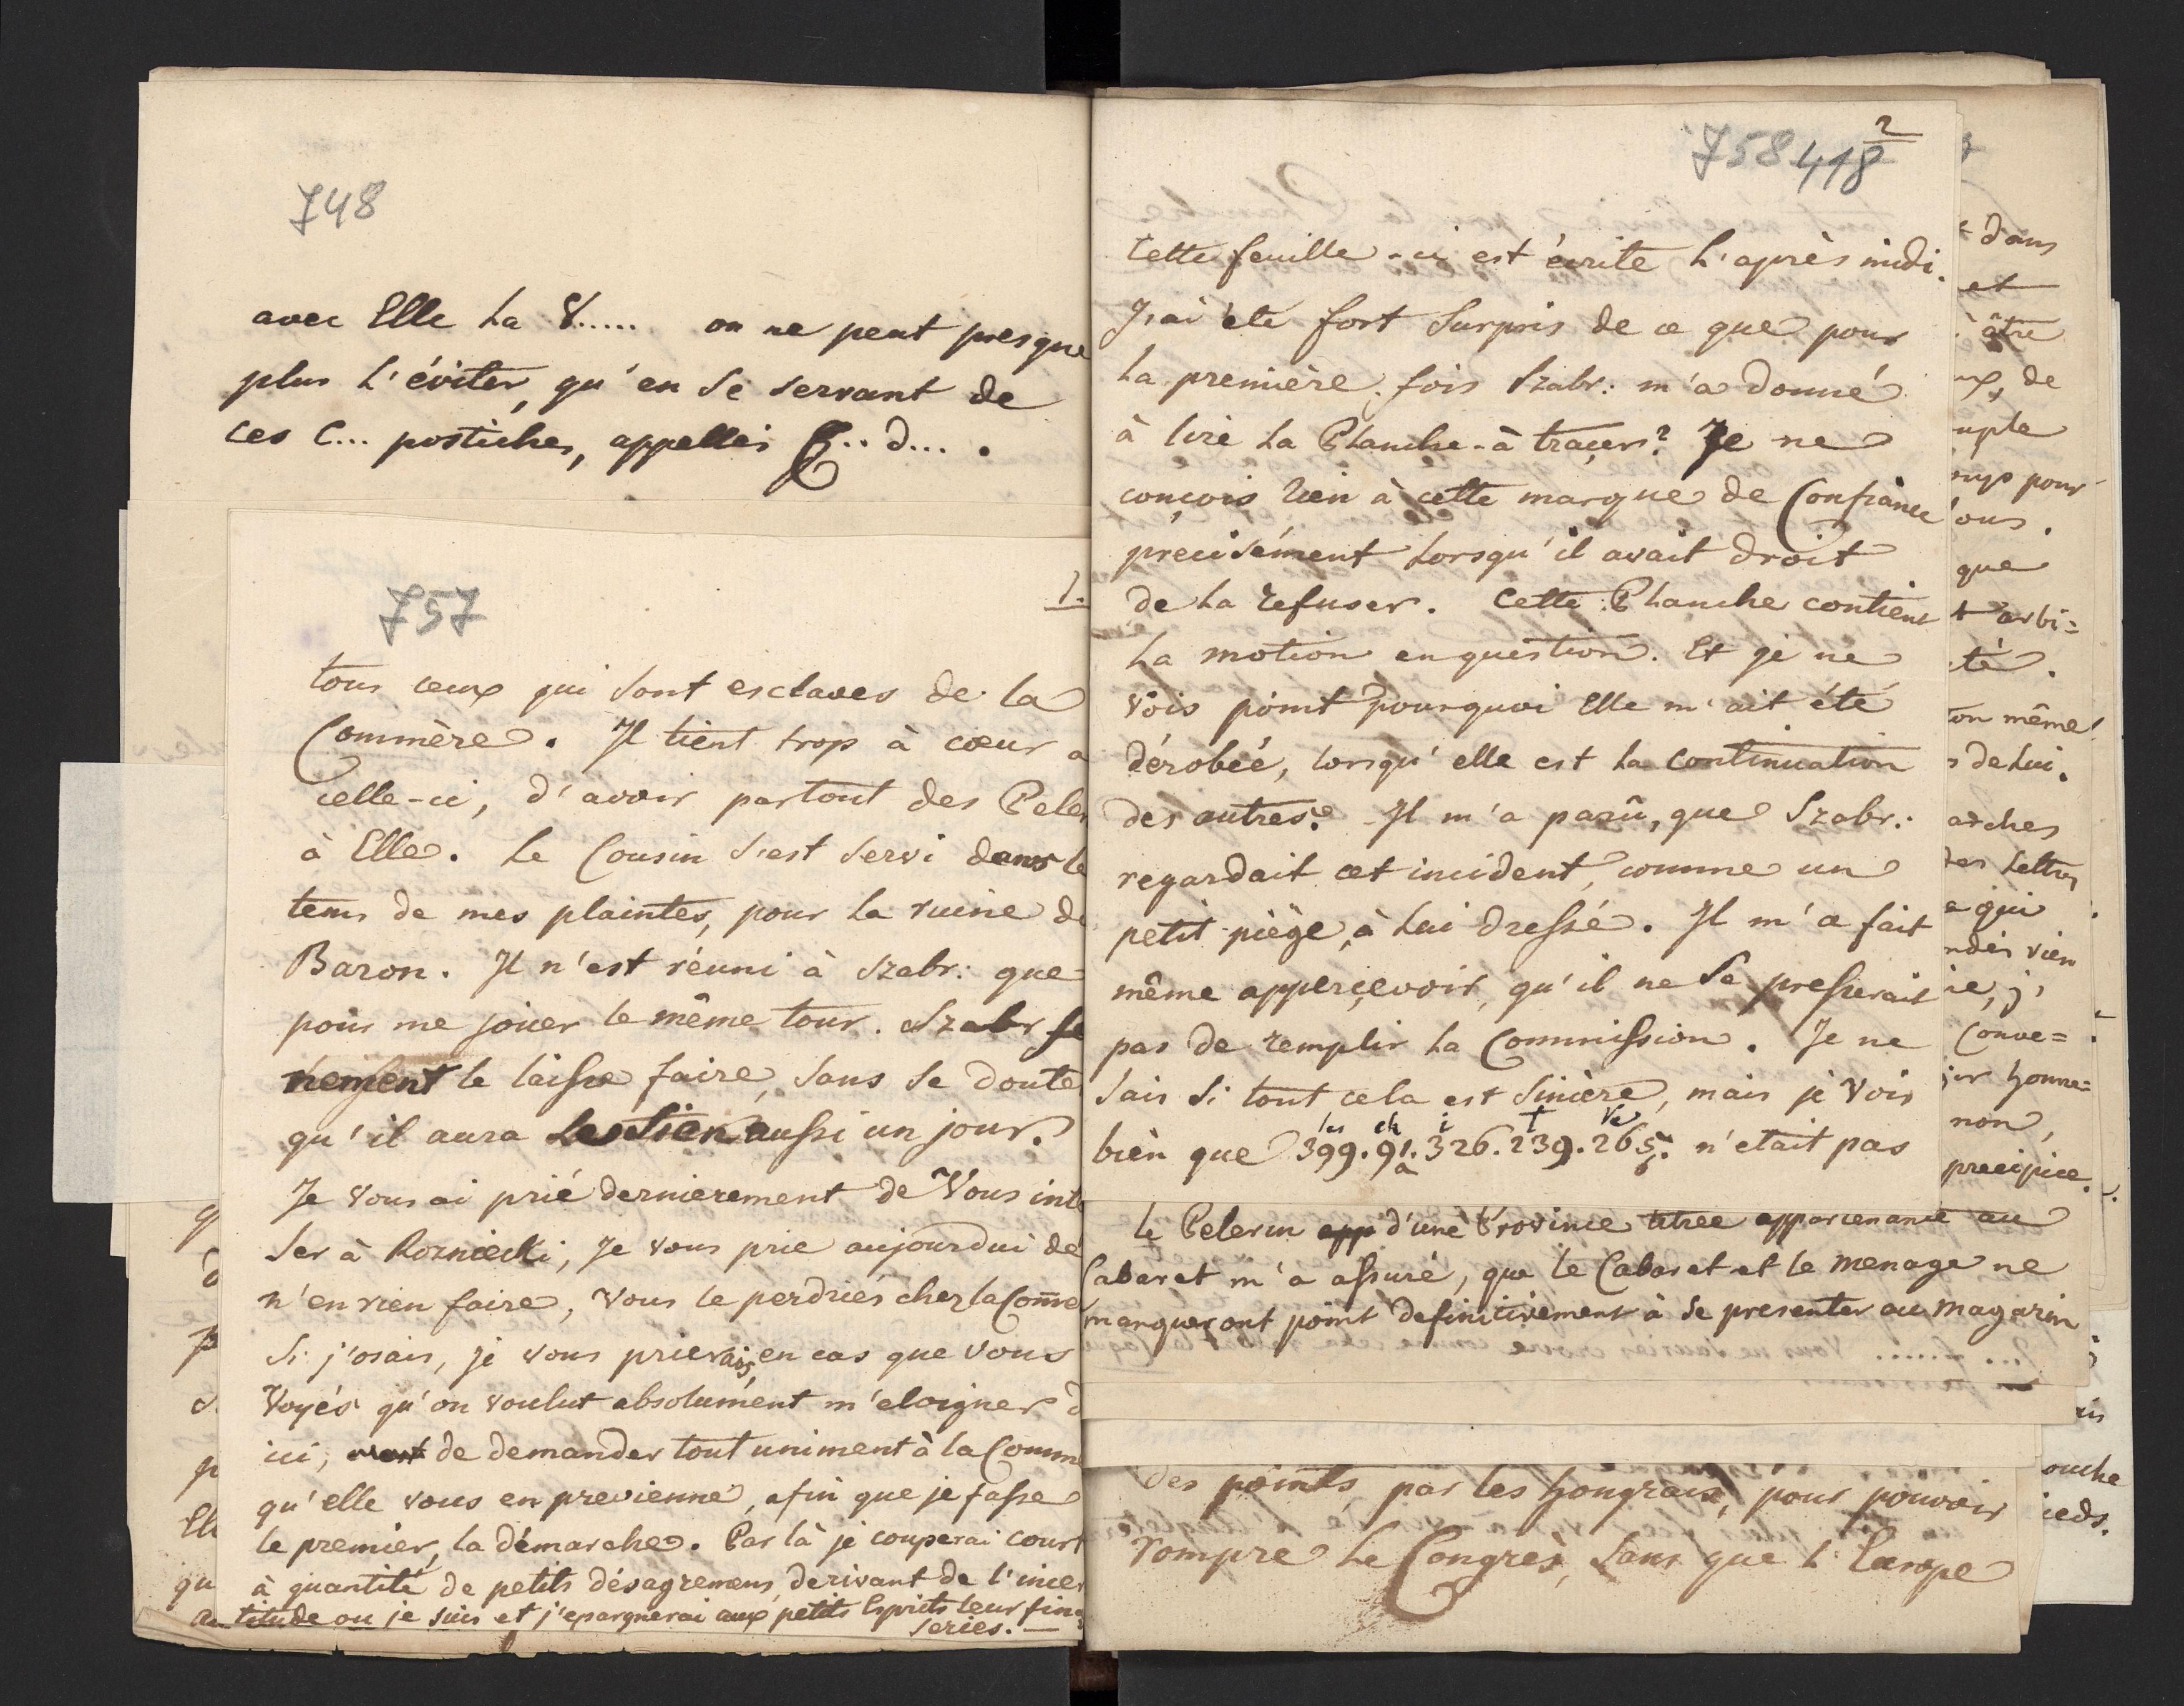 748
avec Elle la V..... on ne peut presque
plus l'éviter, qu'en se servant de
ces C... postiches, appellés R... d... .
757
1.
tous ceux qui sont esclaves de la
Commère. Il tient trop à cœur a
celle-ci, d'avoir partout des Peler
à Elle. Le Cousin s'est servi dans le
tems de mes plaintes, pour la ruine d
Baron. Il n'est réuni à Szabr: que
pour me jouer le même tour. Szabr
le laisse faire, sans se doute
qu'il aura aussi un jour.
Je vous ai prié dernierement de Vous inté
ser à Rozniecki, Je vous prie aujourdui de
n'en rien faire, vous le perdriés chez la Comme
Si j'osais, je vous prierais, en cas que vous
voyés qu'on voulut absolument m'eloigner d
ici, de demander tout uniment à la Comm
qu'elle vous en previenne, afin que je fasse
le premier, la démarche. Par là je couperai court
à quantité de petits désagremens, derivant de l'incer
titude ou je suis et j'epargnerai aux petits Esprits leur fin
series. —
758 418
2
Cette feuille-ci est écrite l'après midi.
J'ai été fort surpris de ce que pour
la première fois Szabr: m'a donné
à lire la Planche-à tracer? Je ne
conçois rien à cette marque de Confiance
precisément lorsqu'il avait droit
de la refuser. Cette Planche contient
la motion en question. Et je ne
vois point pourquoi Elle m'ait été
dérobée, lorsqu'elle est la continuation
des autres? Il m'a parû, que Szabr:
regardait cet incident, comme un
petit piège, à lui dressé. Il m'a fait
même apperçevoir, qu'il ne se presserait
pas de remplir la Commission. Je ne
sais si tout cela est sincère, mais je vois
ch i t ve
bien que 399.91.326.239.265. n'etait pas
a
le Pelerin app d'une Province titree appartenante au
Cabaret m'a assuré, que le Cabaret et le menage ne
manqueront point definitivement à se presenter au magazin
des points, par les hongrais, pour pouvoir
rompre le Congrès, sans que l'Europe
dans
et
être
de
uple
pour
ous.
que
t arbi=
té.
ton même
s de lui.
arches
des lettres
qui
ndés rien
ie, j'
Conve=
honne=
non,
precipice.
ouche
ieds.